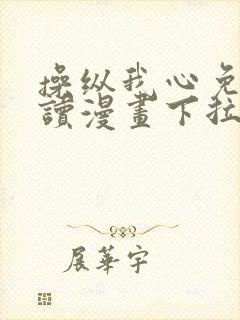 操纵我心免
讀漫畫下拉
展華宇